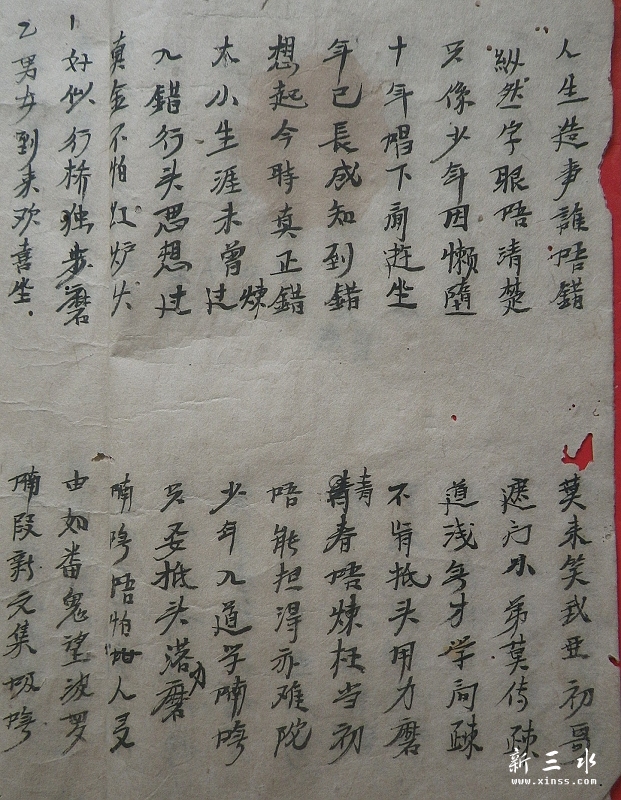 人生造事誰唔錯
莫来笑我丑初哥
纵然字眼唔清楚
遮门小弟莫传疎
只係少年因懒堕
道浅无才学问疎
十年唱下肩莛坐
不肯抵头用力磨
年已長成知到错
青春唔煉枉当初
想起今時真正錯
唔能担得亦难陀
木小生涯未曾过
少年入道学喃哞
入錯行头思想过
只要抵头潜力磨
真金不怕煉红炉火
喃哞唔怕人多
好似行桥独步磨
由如番鬼望波罗
乙男女到来欢喜坐
喃段新文集
新三水
www.xinss.com